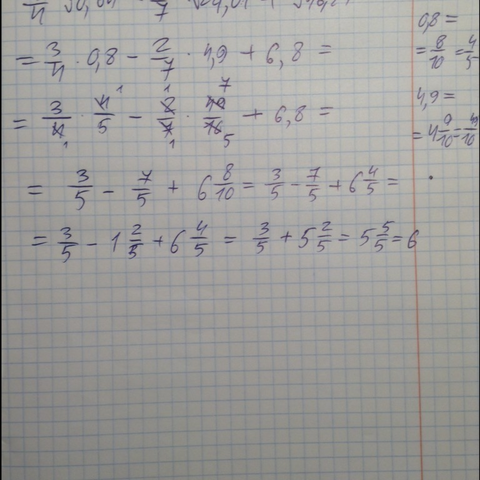 = 3/4 · 0,8 − 2/7 · 4,9 + 6,8 =
= 3/4 · 4/5 − 2/7 · 49/10 + 6,8 =
= 3/5 − 7/5 + 6 8/10 = 3/5 − 7/5 + 6 4/5 =
= 3/5 − 1 2/5 + 6 4/5 = 3/5 + 5 2/5 = 5 5/5 = 6
0,8 =
= 8/10 = 4/5
4,9 =
= 4 9/10 = 49/10